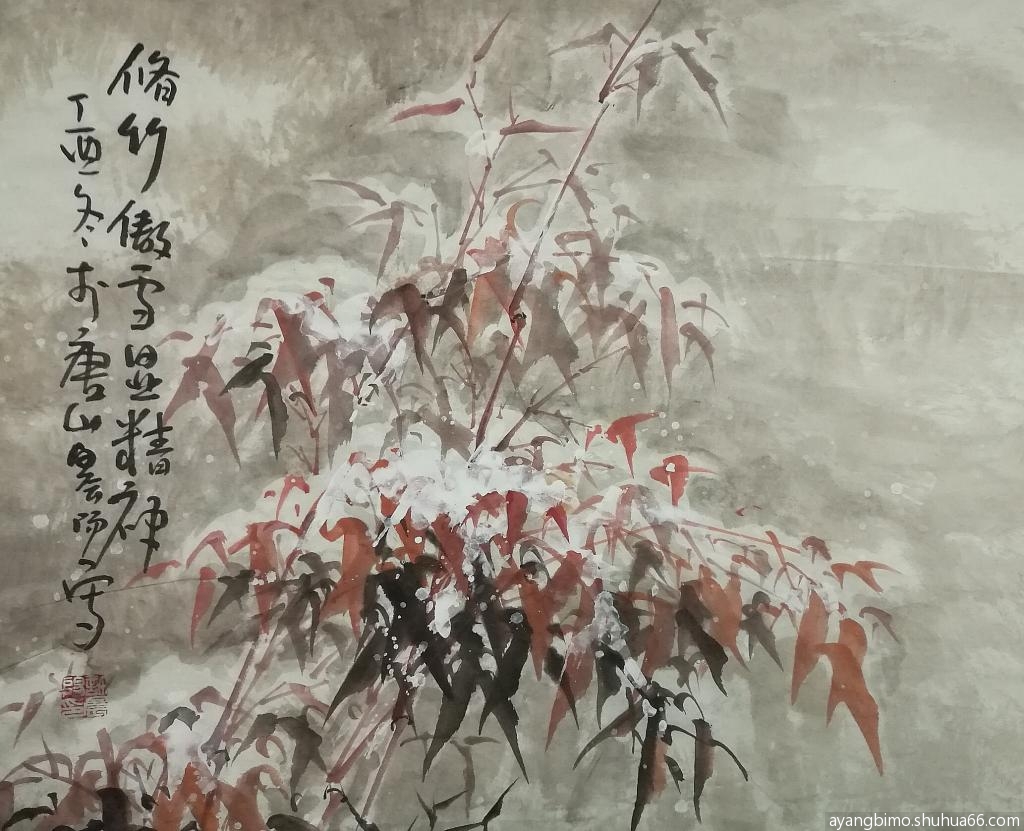 脩竹傲雪显精神
丁酉冬于唐山
写
ayangbimo.shuhua66.com